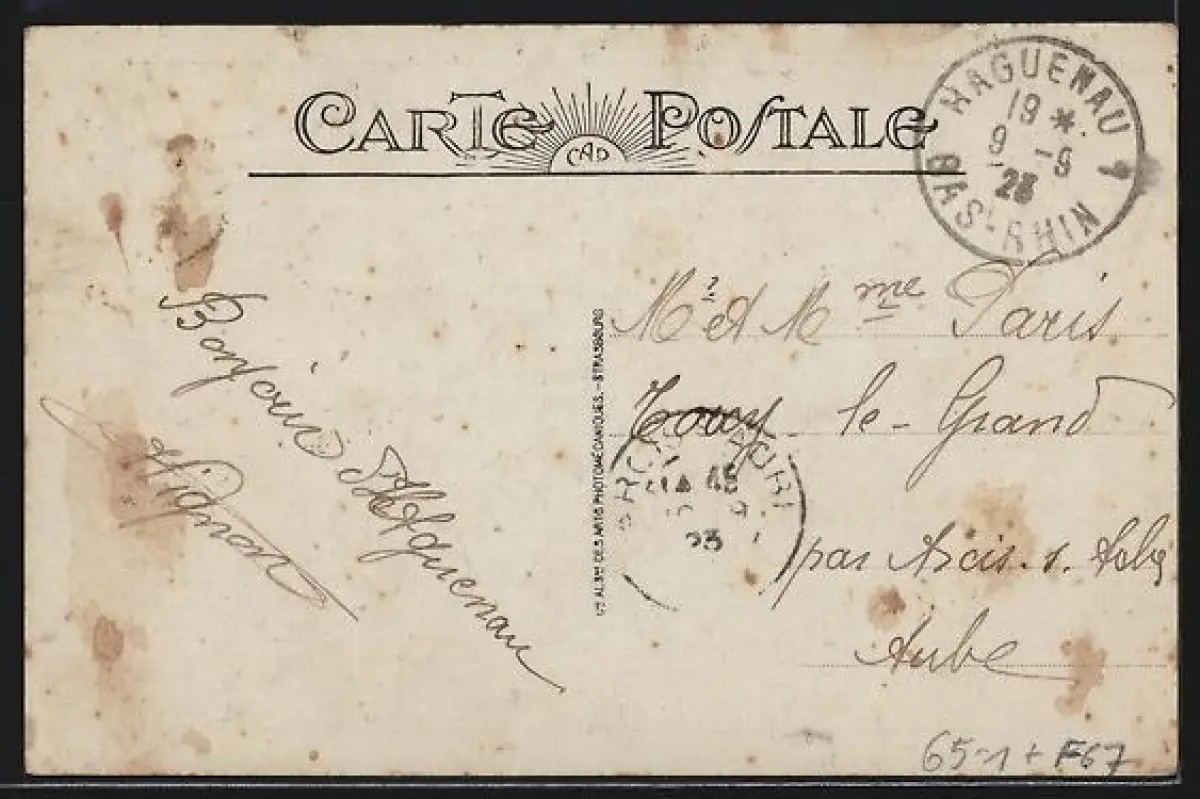 CARTE POSTALE
CAP
HAGUENAU 1
19 *
9 - 9
23
BAS-RHIN
Bonjour d'Haguenau
Vignot
Cie ALSne DES ARTS PHOTOMÉCANIQUES. - STRASBOURG
Mr et Mme Paris
le-Grand
par Arcis. s. Aube
Aube
23
65-1 + F67